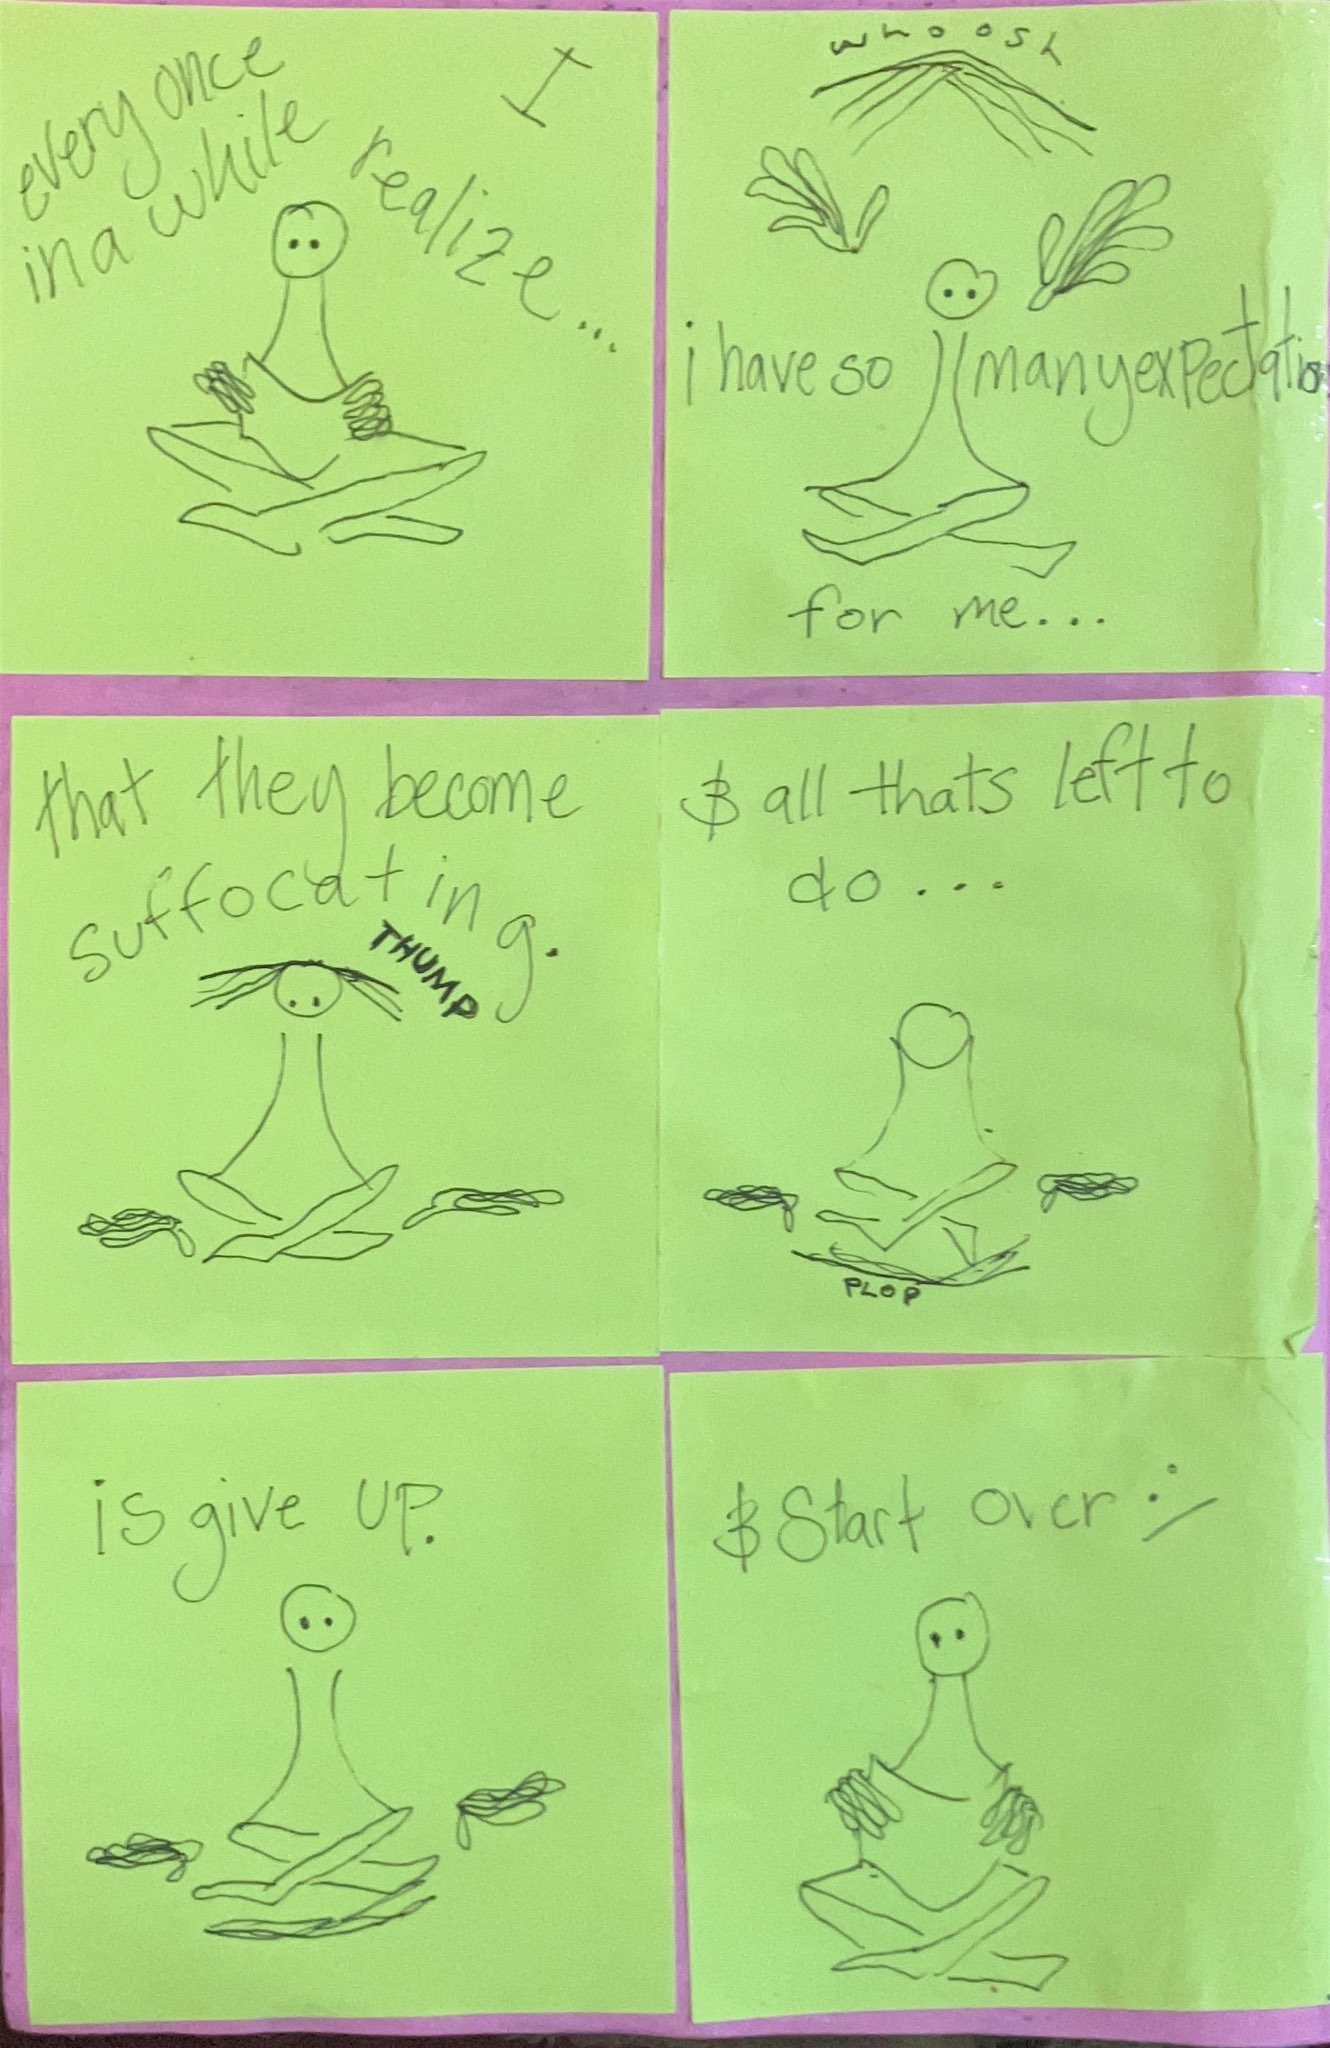 every once
in a while
I
realize...
whoosh
i have so many expectatio
for me...
that they become
suffocating.
THUMP
& all thats left to
do...
PLOP
is give up.
& Start over :/